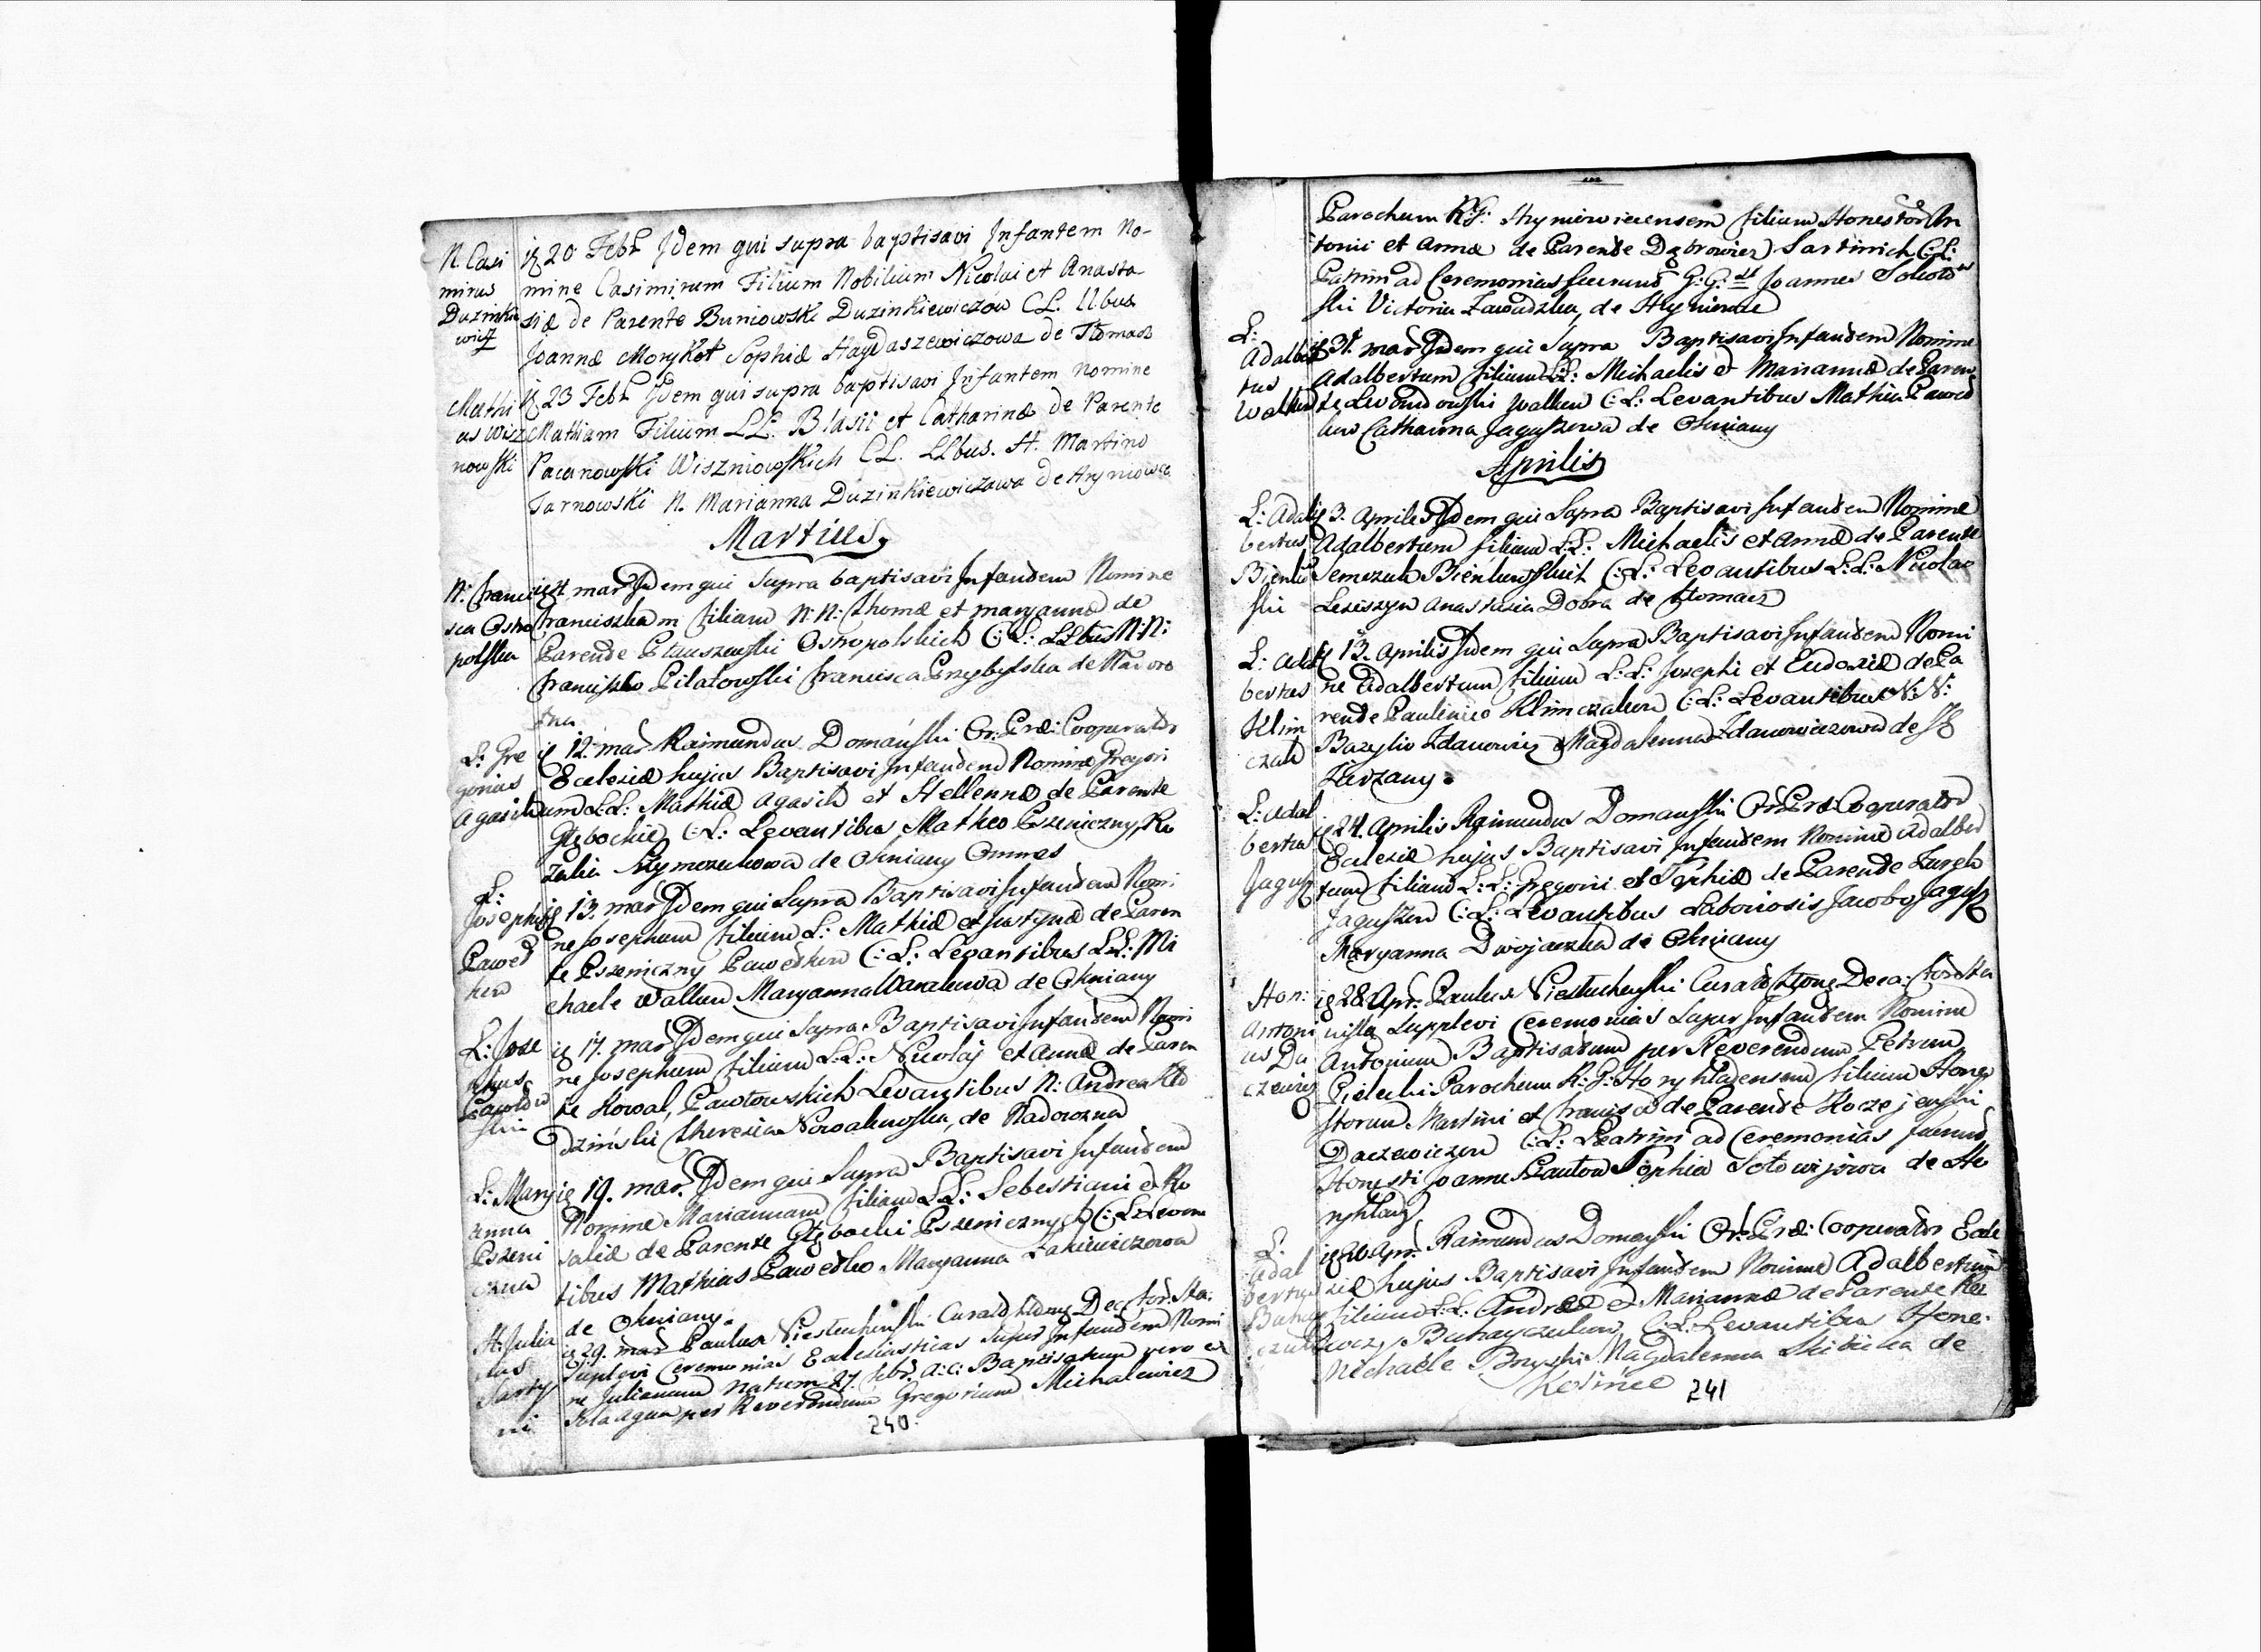 N. Casi
mirus
Duzinkie
wicz
ig 20 Febr Idem qui supra baptisavi Infantem No-
mine Casimirum Filium Nobilium Nicolai et Anasta
siæ de Parente Buniowski Duzinkiewiczow CL. LLbus
Joannæ Morykot Sophiæ Haydaszewiczowa de Tłomacz
Mathi
as Wisz
nowski
ig 23 Febr Idem qui supra baptisavi Infantem nomine
Mathiam Filium LL. Blasii et Catharinæ de Parente
Pacanowski Wiszniowskich CL. LLbus. H. Martino
Tarnowski N. Marianna Duzinkiewiczawa de Hryniowce
Martius
N: Franci
sca Ostro
polska
mar Idem qui Supra baptisavi Infantem Nomine
Franciszkam filiam N: N: Thomæ et maryannæ de
Parente Ostropolskich C: L: LLbus N: N:
Francisko Pilatowski Francisca Przybylska de Nadwo
rna
L: Gre
gorius
Agasik
ig 12. mar Raimundus Domański Or: Præ: Cooperator
Ecclesiæ hujus Baptisavi Infantem Nomine Gregori
um L: L: Mathiæ Agasik et Hellennæ de Parente
Głębockie C: L: Levantibus Matheo Pszeniczny Ro
zalia Szymczukowa de Okniany Omnes
L:
Josephus
Paweł
kow
ig 13. mar Idem qui Supra Baptisavi Infantem Nomi
ne Josephum filium L: Mathiæ et Justynæ de Paren
te Pszeniczny Pawełkow C: L: Levantibus L: L: Mi
chaele Walkow Maryanna de Okniany
L: Jose
phus
Pawłow
ski
ig 17. mar Idem qui Supra Baptisavi Infantem Nomi
ne Josephum filium L: L: Nicolaj et Annæ de Paren
te Kowal, Pawłowskich Levantibus N: Andrea Ru
dziński Theresia Nowakowska, de Nadworna
L: Mary
anna
Pszeni
czna
ig 19. mar. Idem qui Supra Baptisavi Infantem
Nomine Mariannam filiam L: L: Sebestiani et Ro
saliæ de Parente Głębocki Pszenicznych C: L: Levan
tibus Mathias Pawełko Maryanna Łakiewiczowa
de Okniany.
H: Julia
nus
Sarty
ni
ig 29. mar Paulus Piestuchowski Curatus Decr: For: Sta:
Suplevi Ceremonias Ecclesiasticas super Infantem Nomi
ne Julianum natum 27. febr. a: c: Baptisatum vero ex
Sola aqua per Reverendum Gregorium Michalewicz
240.
Parochum R: G: Hryniowiecensem filium Honestor An
tonii et Annæ de Parente Dąbrowiez Sartinich C: L:
Patrini ad Ceremonias fuerunt G: G: Joannes Sokoło
ski Victoria Zawadzka, de Hryniowce
L:
Adalber
tus
Walkow
ig 31. mar Idem qui Supra Baptisavi Infantem Nomine
Adalbertum filium L: L: Michaelis et Mariannæ de Paren
te Lewandowski Walkow C: L: Levantibus Mathia Paweł
kow Catharina Jaguszowa de Okniany
Aprilis
L: Adal
bertus
Bienkow
ski
ig 3. Aprilis Idem qui Supra Baptisavi Infantem Nomine
Adalbertum filium L: L: Michaelis et Annæ de Parente
Semczuk Bienkowskich C: L: Levantibus L: L: Nicolao
Lesiszyn Anastasia Dobra de Tłomacz
L: Adal
bertus
Klim
czak
ig 13. Aprilis Idem qui Supra Baptisavi Infantem Nomi
ne Adalbertum filium L: L: Josephi et Eudoxiæ de Pa
rente Paulinico Klimczakow C: L: Levantibus N: N:
Bazylio Zdanowicz Magdalenna Zdanowiczowa de
L: Adal
bertus
Jagusz
ig 24. Aprilis Raimundus Domański Or: Præ: Cooperator
Ecclesiæ hujus Baptisavi Infantem Nomine Adalber
tum filium L: L: Gregorii et Sophiæ de Parente
Jaguszow C: L: Levantibus Laboriosis Jacobo Jagusz
Maryanna Dwojaczka de Okniany
Hon:
Antoni
us Da
czewicz
ig 28 Apr. Paulus Piestuchowski Curatus Deca: For: Sta
nisla Supplevi Ceremonias Super Infantem Nomine
Antonium Baptisatum per Reverendum Petrum
Pielecki Parochum R: G: Horyhladensem filium Hone
storum Martini et Francisæ de Parente
Daczewiczow C: L: Patrini ad Ceremonias fuerunt
Honesti Joannes Panton Sophia Sołowijowa de Ho
ryhlady
L:
Adal
bertus
ig 28 Apr. Raimundus Domański Or: Præ: Cooperator Eccle
siæ hujus Baptisavi Infantem Nomine Adalbertum
filium L: L: Andreæ et Mariannæ de Parente
C: L: Levantibus Hone:
Michaele Magdalenna Skibicka de
Kolince
241